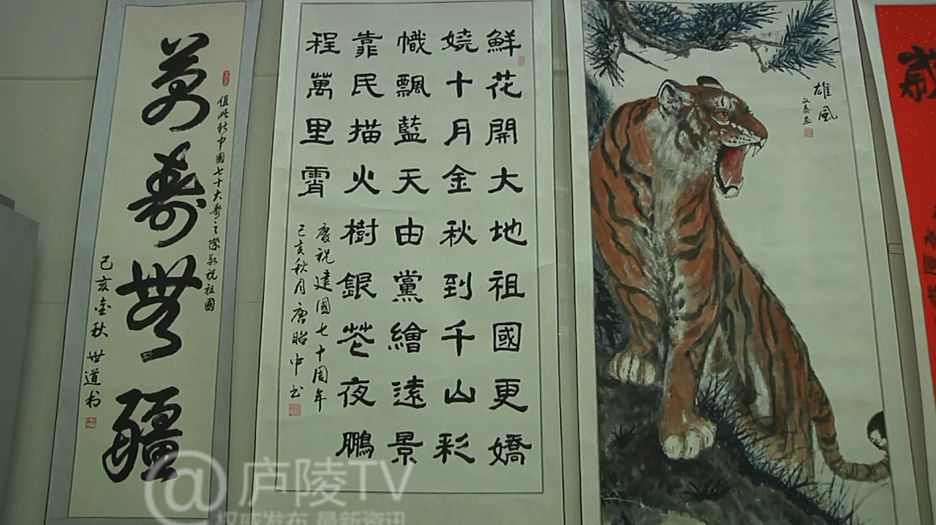 值此新中國七十大壽之際敬祝祖國
萬壽無疆
己亥金秋 世道书
鮮花開大地祖國更嬌
嬈十月金秋到千山彩
幟飄藍天由黨繪遠景
靠民描火樹銀花夜鵬
程萬里霄
慶祝建國七十周年
己亥秋月唐昭中书
雄風
@庐陵TV
权威发布 最新资讯